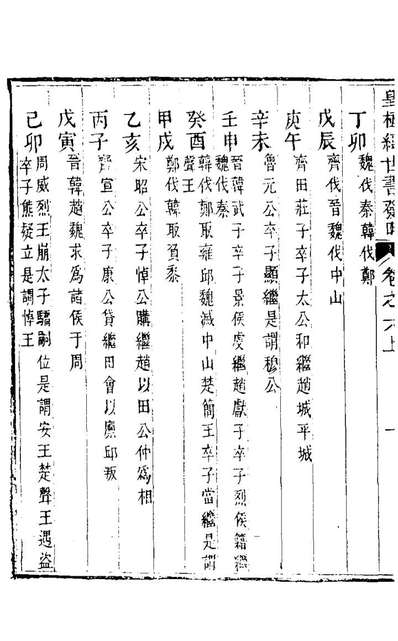 皇極經世書發明 卷之六上 一
丁卯
魏伐秦韓伐鄭
戊辰
齊伐晉魏伐中山
庚午
齊田莊子卒子太公和繼趙城平城
辛未
魯元公卒子顯繼是謂穆公
壬申
晉韓武子卒子景侯虔繼趙獻子卒子烈侯籍繼
魏伐秦
癸酉
韓伐鄭取雍邱魏滅中山楚簡王卒子當繼是謂
聲王
甲戌
鄭伐韓取負黍
乙亥
宋昭公卒子悼公購繼趙以田公仲為相
丙子
齊宣公卒子康公貸繼田會以廩邱叛
戊寅
晉韓趙魏求為諸侯于周
己卯
周威烈王崩太子驕嗣位是謂安王楚聲王遇盜
卒子熊疑立是謂悼王